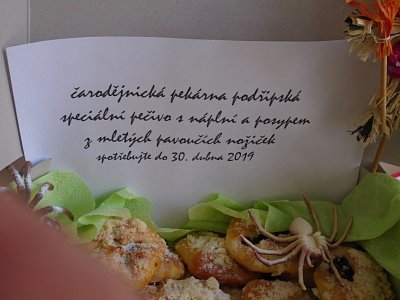 čarodějnická pekárna podřipská
speciální pečivo s náplní a posypem
z mletých pavoučích nožiček
spotřebujte do 30. dubna 2019